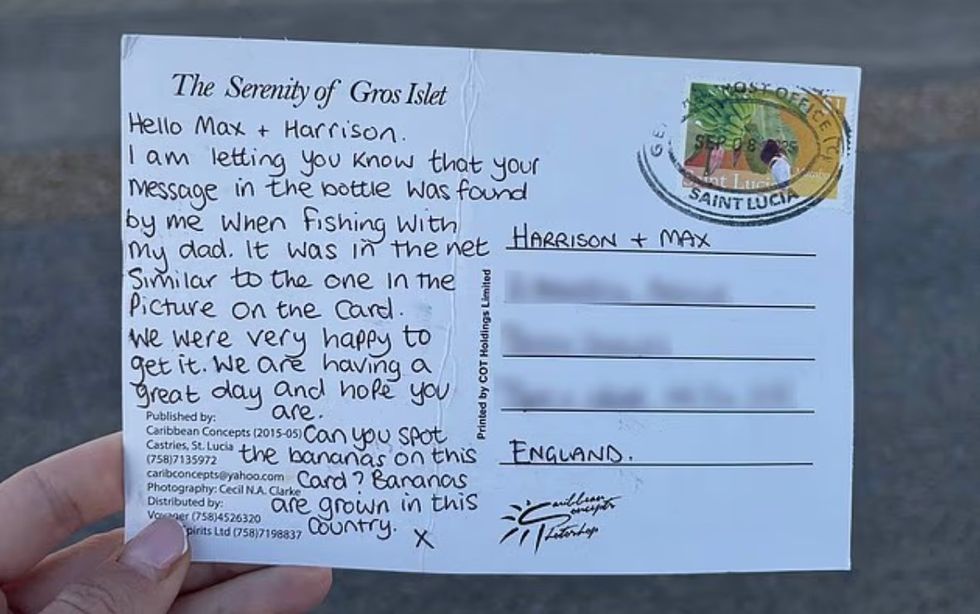 The Serenity of Gros Islet
Hello Max + Harrison.
I am letting you know that your
message in the bottle was found
by me when fishing with
my dad. It was in the net
Similar to the one in the
Picture on the Card.
We were very happy to
get it. We are having a
great day and hope you
are.
Can you spot
the bananas on this
Card? Bananas
are grown in this
country. x
Published by:
Caribbean Concepts (2015-05)
Castries, St. Lucia
(758)7135972
caribconcepts@yahoo.com
Photography: Cecil N.A. Clarke
Distributed by:
Voyager (758)4526320
Spirits Ltd (758)7198837
Printed by COT Holdings Limited
POST OFFICE
SEP 08
Saint Lucia
SAINT LUCIA
HARRISON + MAX
ENGLAND.
Caribbean
Concepts